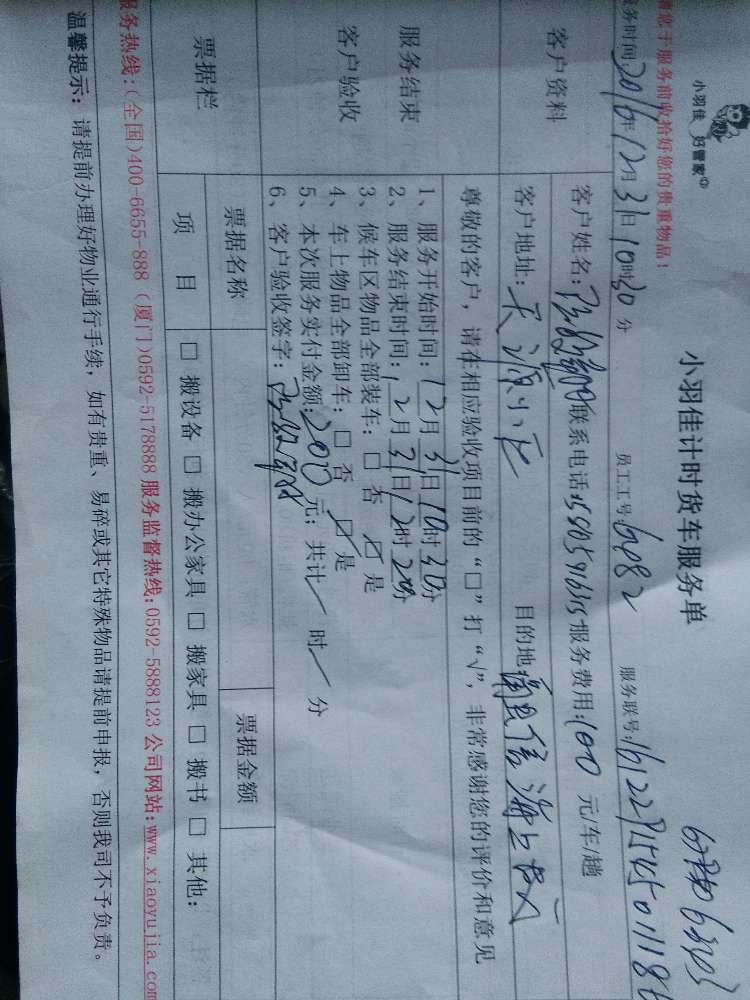 小羽佳 好管家
小羽佳计时货车服务单
请您于服务前收拾好您的贵重物品!
服务时间:2016年12月31日10时30分 员工工号:6982 服务联号:
客户资料
客户姓名: 联系电话: 服务费用:100元/车/趟
客户地址:天源小区 目的地:
尊敬的客户,请在相应验收项目前的“□”打“√”,非常感谢您的评价和意见
服务结束
客户验收
1、服务开始时间:12月31日10时30分
2、服务结束时间:12月31日12时20分
3、候车区物品全部装车:□ 否 ☑ 是
4、车上物品全部卸车:□ 否 ☑ 是
5、本次服务实付金额:200元;共计/时/分
6、客户验收签字:
票据栏
票据名称 票据金额
项 目 □ 搬设备 □ 搬办公家具 □ 搬家具 □ 搬书 □ 其他:
服务热线:(全国)400-6655-888 (厦门)0592-5178888 服务监督热线:0592-5888123 公司网站:www.xiaoyujia.com
温馨提示: 请提前办理好物业通行手续,如有贵重、易碎或其它特殊物品请提前申报,否则我司不予负责。